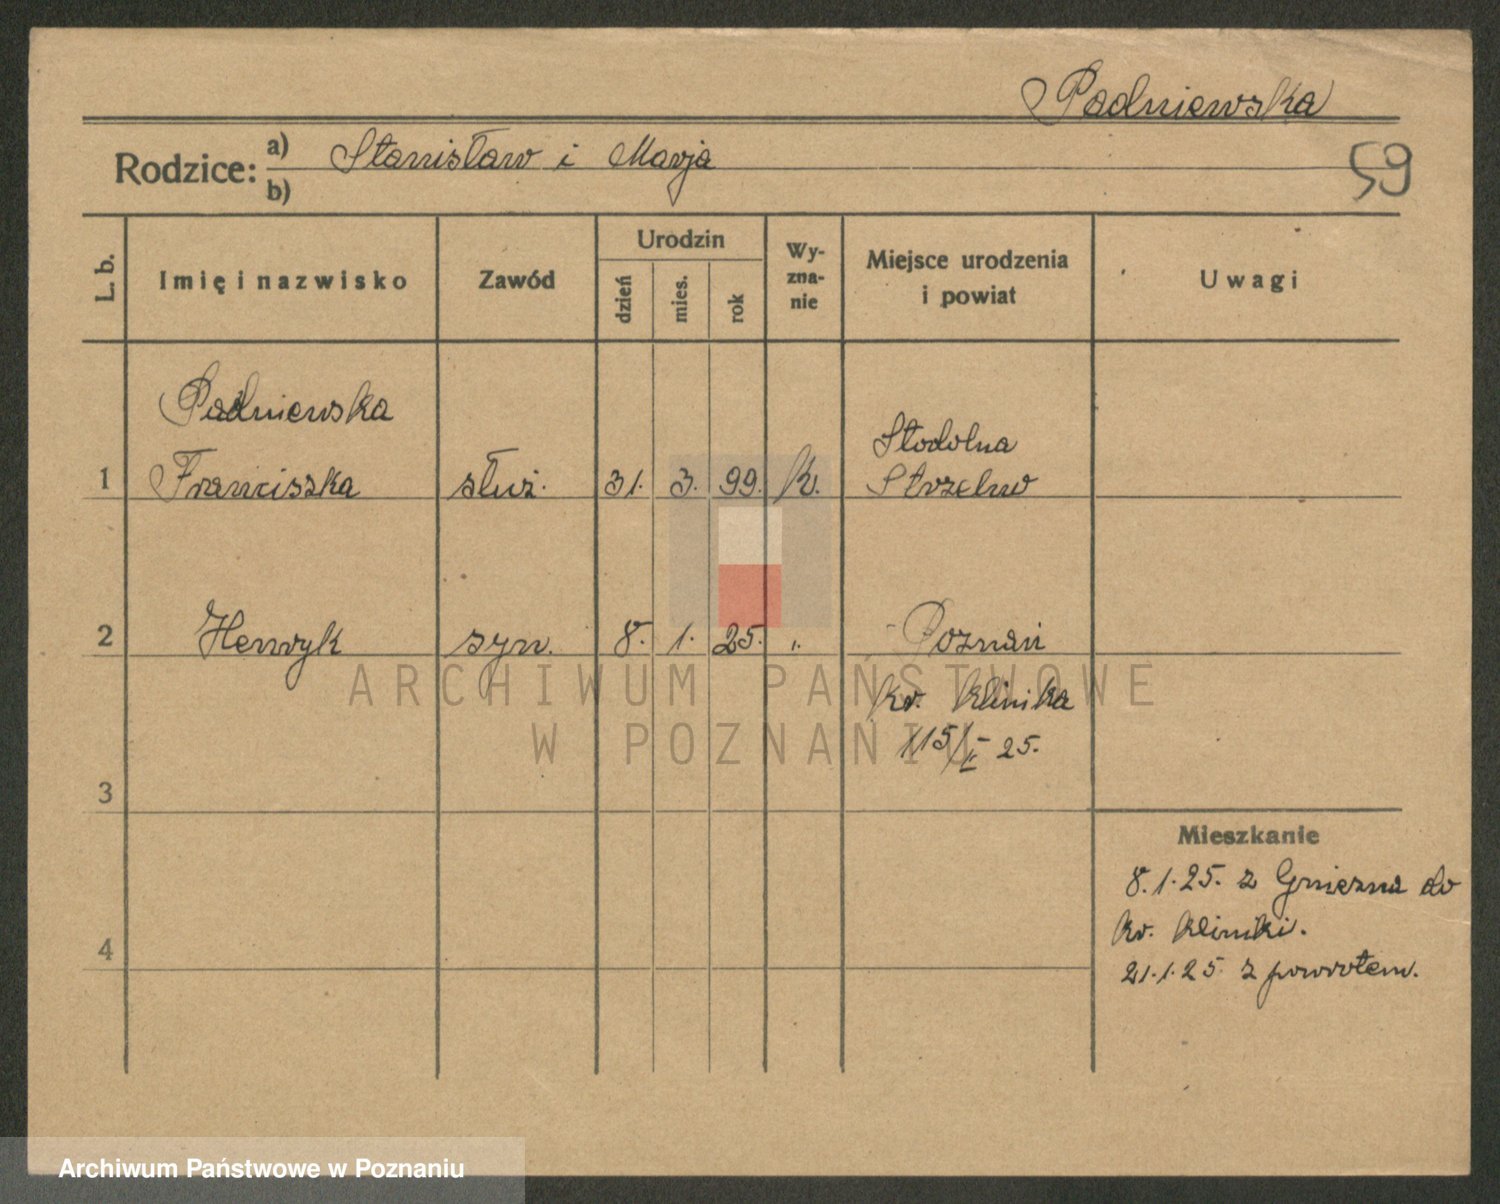 Padniewska
Rodzice: a) Stanisław i Marja
b)
59
L. b. Imię i nazwisko Zawód Urodzin dzień mies. rok Wy-zna-nie Miejsce urodzenia i powiat Uwagi
Padniewska Stodolna
1 Franciszka służ. 31. 3. 99. k. Strzelno
2 Henryk syn. 8. 1. 25. ". Poznań
kr. klinika
115/II 25.
3
Mieszkanie
8.1.25. z Gniezna do
kr. kliniki.
4
21.1.25 z powrotem.
ARCHIWUM PAŃSTWOWE
W POZNANIU
Archiwum Państwowe w Poznaniu